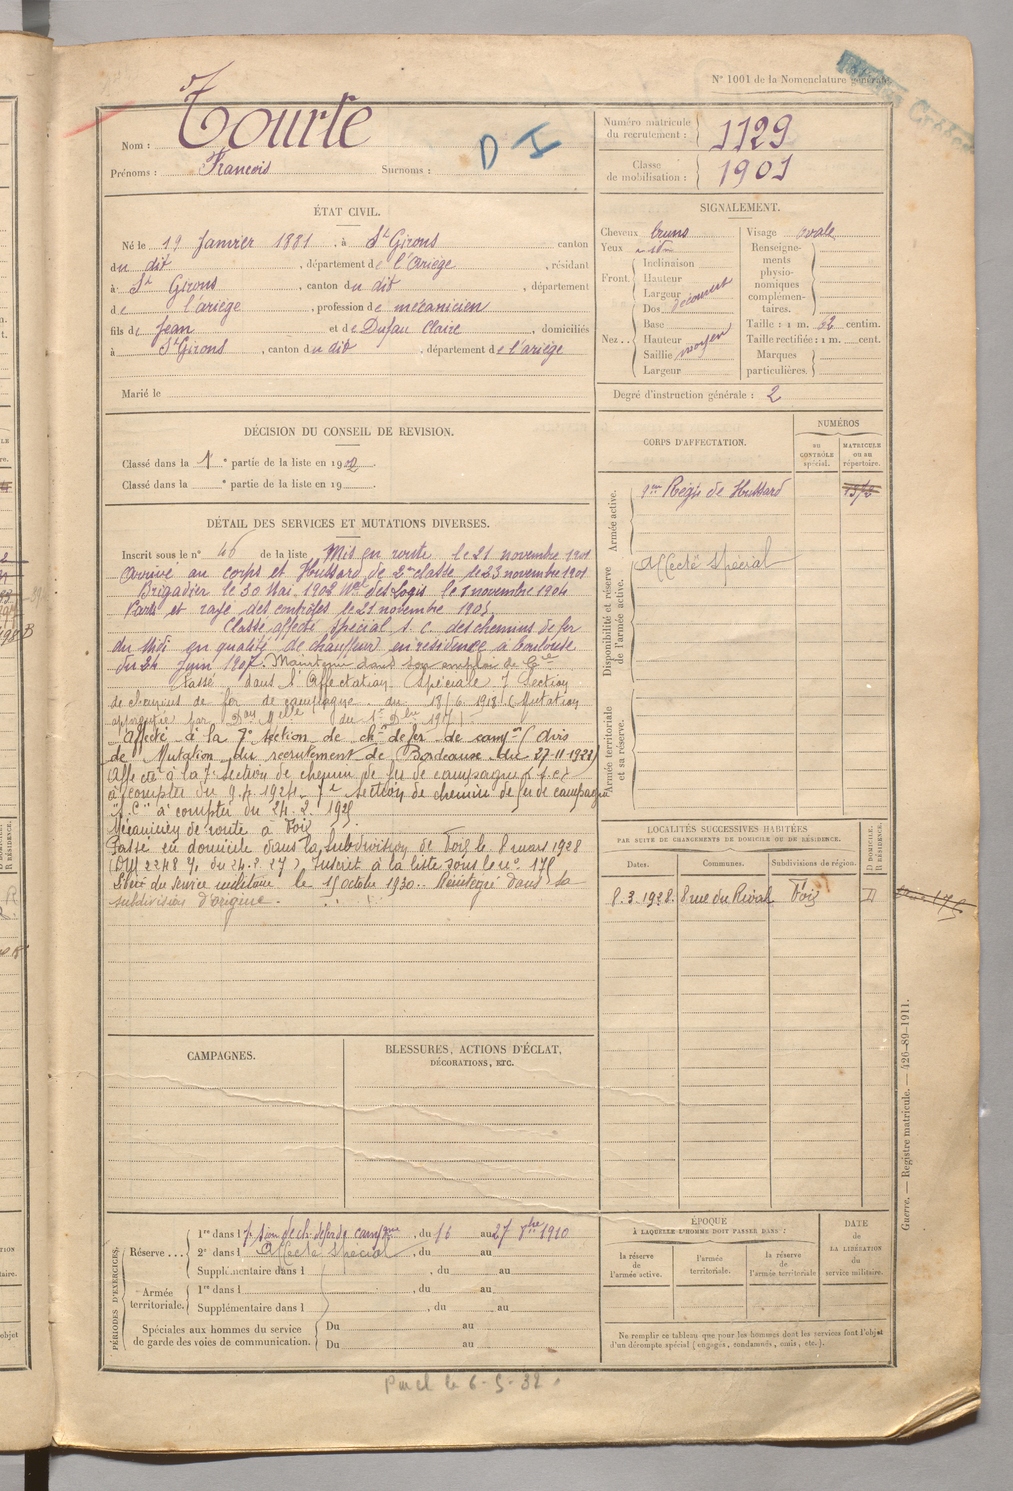 N° 1001 de la Nomenclature générale.
Nom : Tourte
Prénoms : François Surnoms :
D I
Numéro matricule du recrutement : 1129
Classe de mobilisation : 1901
ÉTAT CIVIL.
Né le 19 Janvier 1881, à St Girons canton
du dit, département de l'Ariège, résidant
à St Girons, canton du dit, département
de l'ariège, profession de mécanicien
fils de Jean et de Dufau Claire, domiciliés
à St Girons, canton du dit, département de l'ariège
Marié le
SIGNALEMENT.
Cheveux bruns Visage ovale
Yeux
Front. Inclinaison
Hauteur
Largeur découvert
Nez.. Dos
Base
Hauteur
Saillie moyen
Largeur
Renseignements physionomiques complémentaires.
Taille : 1 m. 62 centim.
Taille rectifiée : 1 m. cent.
Marques particulières.
Degré d'instruction générale : 2
DÉCISION DU CONSEIL DE REVISION.
Classé dans la 1e partie de la liste en 1902.
Classé dans la e partie de la liste en 19
CORPS D'AFFECTATION.
NUMÉROS
AU CONTRÔLE spécial.
MATRICULE OU AU répertoire.
Armée active.
9me Regt de Hussard
Disponibilité et réserve de l'armée active.
Affecté Spécial
Armée territoriale et sa réserve.
DÉTAIL DES SERVICES ET MUTATIONS DIVERSES.
Inscrit sous le n° 46 de la liste Mis en route le 21 novembre 1901
Arrivé au corps et Hussard de 2me classe le 23 novembre 1901
Brigadier le 30 Mai 1902 Mal des Logis le 1 novembre 1904
Parti et rayé des contrôles le 21 novembre 1905
Classé affecté spécial s. c. des chemins de fer
du Midi en qualité de chauffeur en résidence à Toulouse
du 24 Juin 1907. Maintenu dans son emploi de Gre
Passé dans l'Affectation Spéciale 7 Section
de chemins de fer de campagne du 18/6 1918 (Mutation
Affecté à la 7e section de chn de fer de campne (avis
de Mutation du recrutement de Bordeaux du 27-11-1921)
Affecté à la 7e section de chemin de fer de campagne (s.c.)
à compter du 9.4.1924. 7e section de chemin de fer de campagne
"S.C" à compter du 24.2.1925
Mécanicien de route à Foix
Passé en domicile dans la subdivision de Foix le 8 mars 1928
Inscrit à la liste sous le n° 175
Libéré du service militaire le 15 octobre 1930. Réintégré dans sa
subdivision d'origine.
LOCALITÉS SUCCESSIVES HABITÉES
PAR SUITE DE CHANGEMENTS DE DOMICILE OU DE RÉSIDENCE.
Dates. Communes. Subdivisions de région. D DOMICILE. R RÉSIDENCE.
8.3.1928. 8 rue du Rival Foix D
CAMPAGNES.
BLESSURES, ACTIONS D'ÉCLAT,
DÉCORATIONS, ETC.
PÉRIODES D'EXERCICES.
Réserve ... 1re dans l 7e son de ch. de fer de campgne, du 16 au 27 1910
2e dans l Affecté Spécial, du au
Supplémentaire dans l, du au
Armée territoriale. 1re dans l, du au
Supplémentaire dans l, du au
Spéciales aux hommes du service de garde des voies de communication. Du au
Du au
ÉPOQUE
À LAQUELLE L'HOMME DOIT PASSER DANS :
la réserve de l'armée active.
l'armée territoriale.
la réserve de l'armée territoriale
DATE
de
LA LIBÉRATION
du
service militaire.
Ne remplir ce tableau que pour les hommes dont les services font l'objet
d'un décompte spécial (engagés, condamnés, omis, etc.).
Guerre. — Registre matricule. — 426-89-1911.